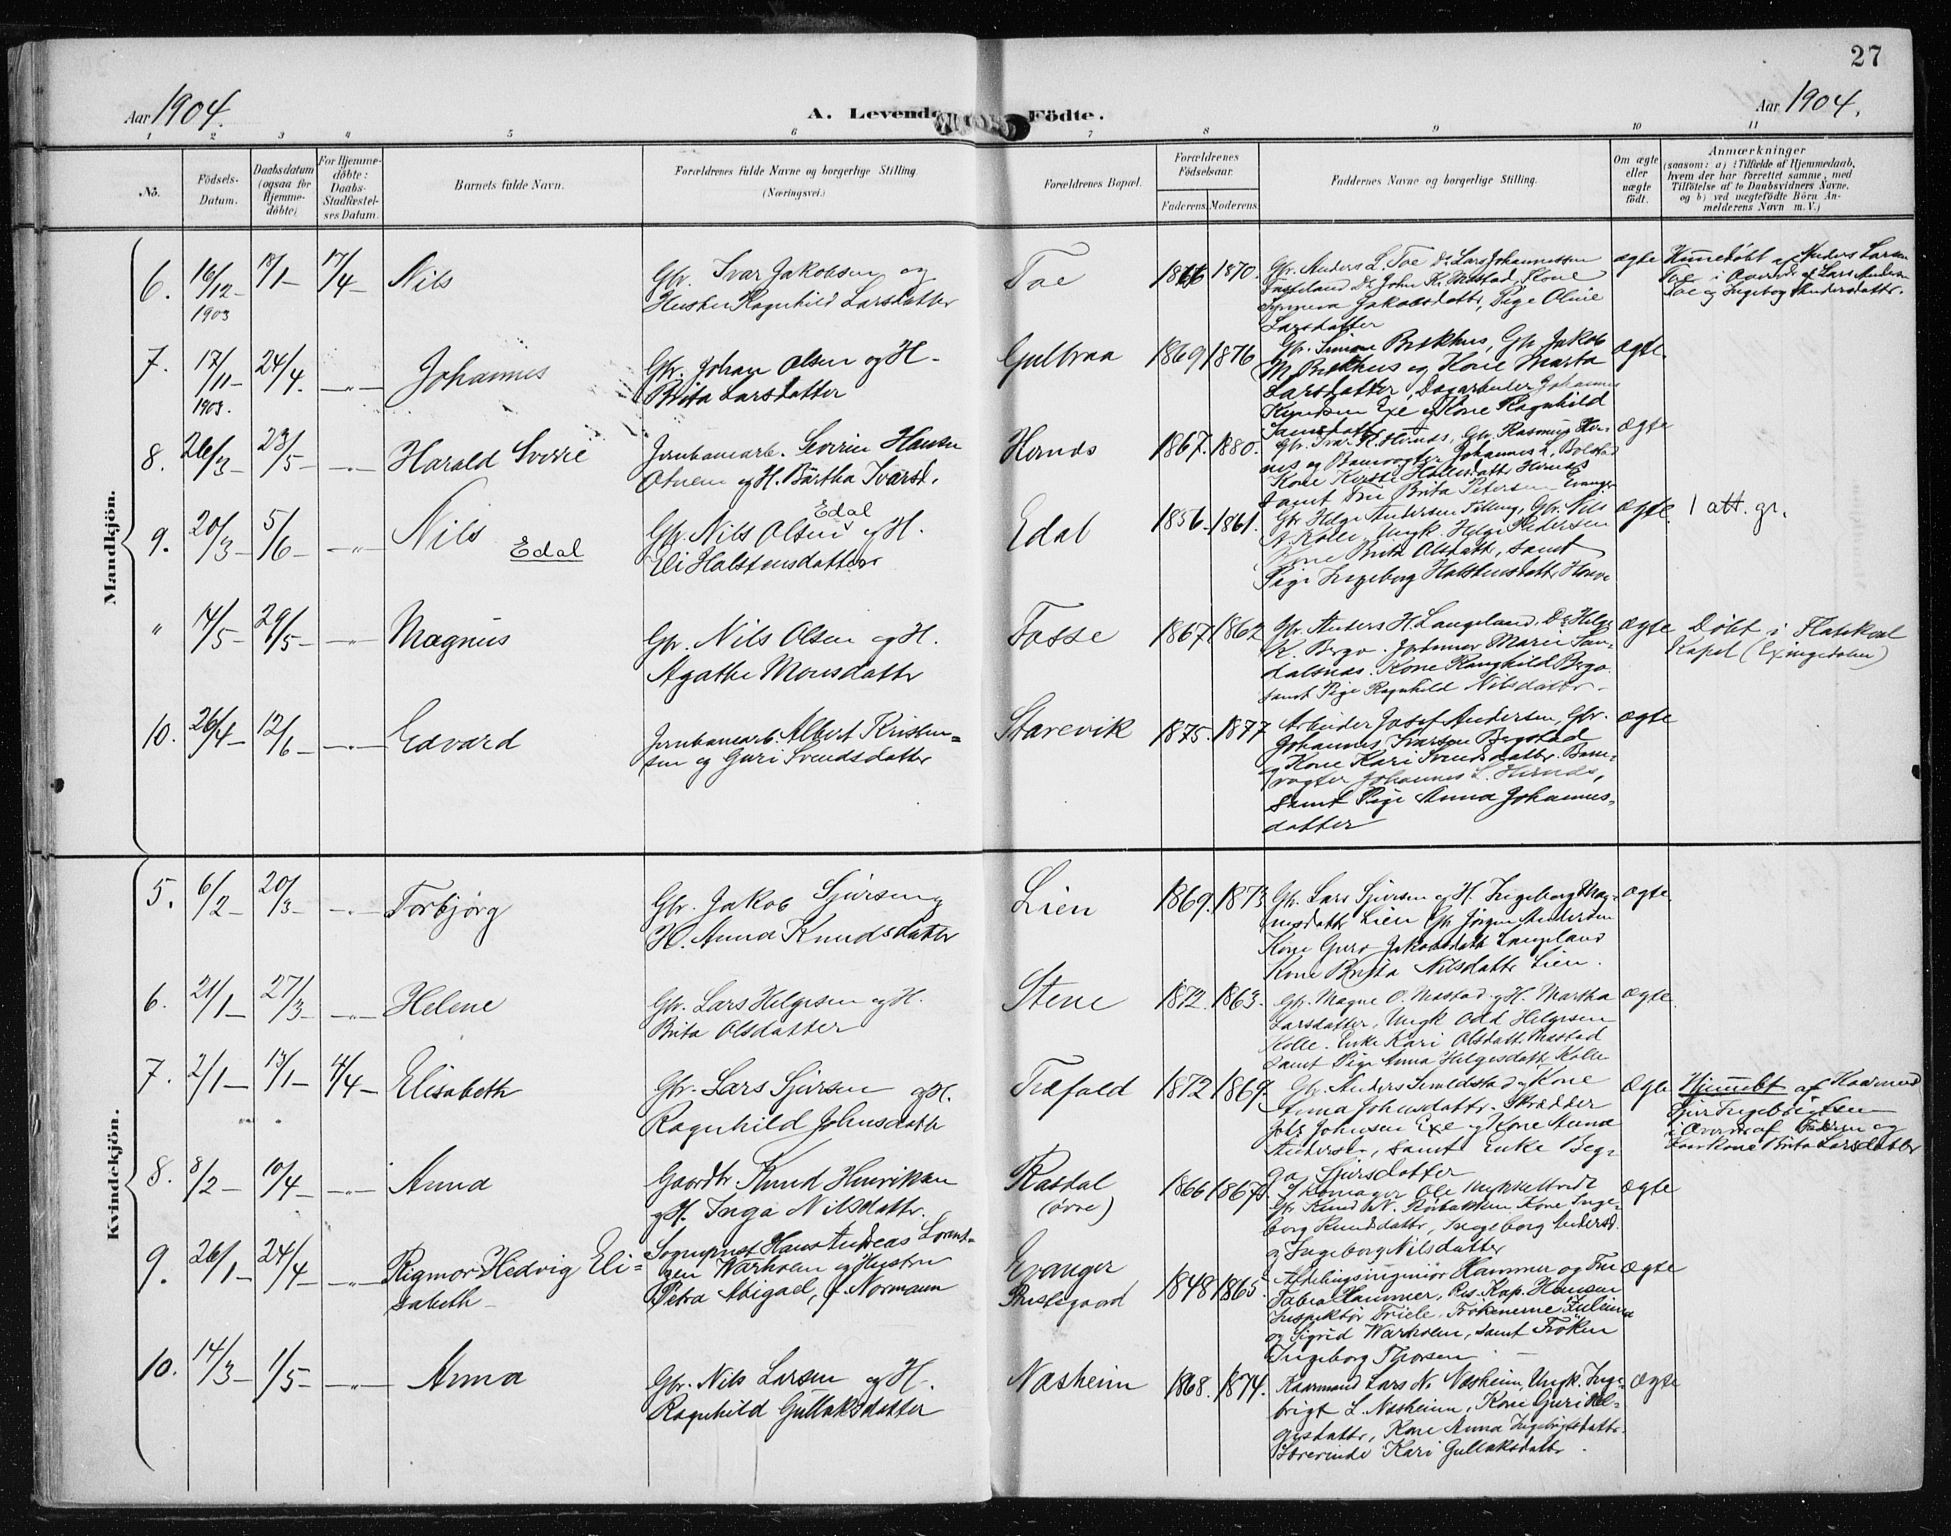 27
Aar 1904.
A. Levende Födte.
Aar 1904.
1 2 3 4 5 6 7 8 9 10 11
No.
Födsels-Datum.
Daabsdatum (ogsaa for Hjemme-döbte)
For Hjemme-döbte: Daabs-Stadfæstel-ses Datum.
Barnets fulde Navn.
Forældrenes fulde Navne og borgerlige Stilling (Næringsvei.)
Forældrenes Bopæl.
Forældrenes Födselsaar.
Faderens. Moderens.
Faddernes Navne og borgerlige Stilling.
Om ægte eller uægte födt.
Anmærkninger
(saasom: a) i Tilfælde af Hjemmedaab,
hvem der har forrettet samme, med
Tilföielse af to Daabsvidners Navne,
og b) ved uægtefödte Börn An-
melderens Navn m. V.)
Mandkjön.
6. 16/12 1903 18/1 17/4 Nils
Gbr. Ivar Jakobsen og
Hustru Ragnhild Larsdatter
Toe 1866 1870.
Gbr. Anders L. Toe Do Lars Johannessen
Do John K. Mæstad, Kone
Synneva Jakobsdattr, Pige Oline
Larsdatter
ægte
Hjemedöbt af Anders Larsen
Toe i Overv. af Lars Andersen
Toe og Ingebog Andersdattr.
7. 17/11 1903. 24/4 Johannes
Gbr. Johan Olsen og H.
Brita Larsdatter
Gulbraa 1869 1876
Gbr. Simon Brekhus, Gbr. Jakob
M. Brekhus og Kone Marta
Larsdatter, Dagarbeider Johannes
Knudsen Exe og Kone Ragnhild
ægte.
8. 26/3 23/5 Harald Sverre
Jernbanearb. Severin Hansen
Otnem og H. Bärtha Ivarsd.
Hernæs 1867. 1880.
Gbr. Ivar K. Hernæs, Gbr. Rasmus Her-
næs og Banevogter Johannes L. Bolstad
Kone Kirsti Hallesdattr Hernæs
samt Fru Brita Petersen Evanger
ægte
9. 20/3 5/6 Nils Edal
Gbr. Nils Olsen Edal og H.
Eli Halstensdatter
Edal 1856 1861.
Gbr. Helge Andersen, Gbr. Nils
N. Kolle, Ungk. Helge Pedersen
Kone Brita Olsdattr, samt
Pige Ingeborg Halstensdattr Horve
ægte. 1 att. gr.
" 14/5 29/5 Magnus
Gbr. Nils Olsen og H.
Agathe Monsdattr
Fosse 1867 1862
Gbr. Anders H. Langeland. Do Helge
K. Bergo. Jordmor Marie San-
dalsnæs. Kone Ragnhild Bergo
samt Pige Ragnhild Nilsdattr.
ægte
Döbt i Flatekval
Kapel (Exingedalen)
10. 26/4 12/6 Edvard
Jernbanearb. Albert Kristen-
sen og Guri Svendsdatter
Starevik 1875. 1877
Arbeider Josef Andersen, Gbr.
Johannes Ivarsen Bergstad
og Kone Kari Svendsdattr. Bane-
vogter Johannes L. Hernæs,
samt Pige Anna Johannes-
datter
ægte
Kvindekjön.
5. 6/2 20/3 Torbjörg
Gbr. Jakob Sjursen og
H. Anna Knudsdatter
Lien 1869. 1873
Gbr. Lars Sjursen og H. Ingeborg Mag-
nesdattr Lien Gbr Jörgen Andersen
Kone Guro Jakobsdattr Langeland
Kone Brita Nilsdattr Lien.
ægte.
6. 21/1 27/3 Helene
Gbr. Lars Helgesen og H.
Brita Olsdatter
Stene 1872. 1863.
Gbr. Magne O. Mæstad og H. Martha
Larsdatter, Ungk. Odd Helgesen
Kolle. Enke Kari Olsdattr Mæstad
samt Pige Anna Helgesdattr, Kolle
ægte.
7. 2/1 13/1 4/4 Elisabeth
Gbr. Lars Sjursen og H.
Ragnhild Johnsdattr
Trefald 1872 1869.
Gbr. Anders Kone
Anna Johnsdattr. Skrædder
Johnsen Exe og Kone Anna
Andersd., samt Enke Beg-
ga Sjursdatter
ægte
Hjemedbt af Kaarmand
Sjur Ingebrigtsen
i Overv. af Faderen og
Kaarkone Brita Larsdattr
8. 8/2 10/4 Anna
Gaardbr Knud Henriksen
og H. Inga Nilsdattr.
Rasdal (övre) 1866 1867.
Skomager Ole Mykkeltvedt
Gbr. Knud N. Kone Inge-
borg Knudsdattr, Ingeborg Andersd.
og Ingeborg Nilsdatter
ægte
9. 26/1 24/4 Rigmor Hedvig Eli-
sabeth
Sogneprest Hans Andreas Lorent-
zen Warholm og Hustru
Petra Abigael, f. Normann
Evanger
Prestegaard 1848 1865.
Afdelingsingeniör Hammer og Fru
Fabia Hammer, Res. Kap. Hansen
Inspektör Friele. Frökenerne Juliane
og Sigrid Warholm, samt Fröken
Ingeborg Thorsen
ægte
10. 14/3 1/5 Anna
Gbr. Nils Larsen og H.
Ragnhild Gullaksdatter
Næsheim 1868. 1874.
Kaarmand Lars N. Næsheim, Ungk. Inge-
brigt L. Næsheim, Kone Guri Hel-
gesdattr, Kone Anna Ingebrigtsdattr.
Lærerinde Kari Gullaksdattr
ægte